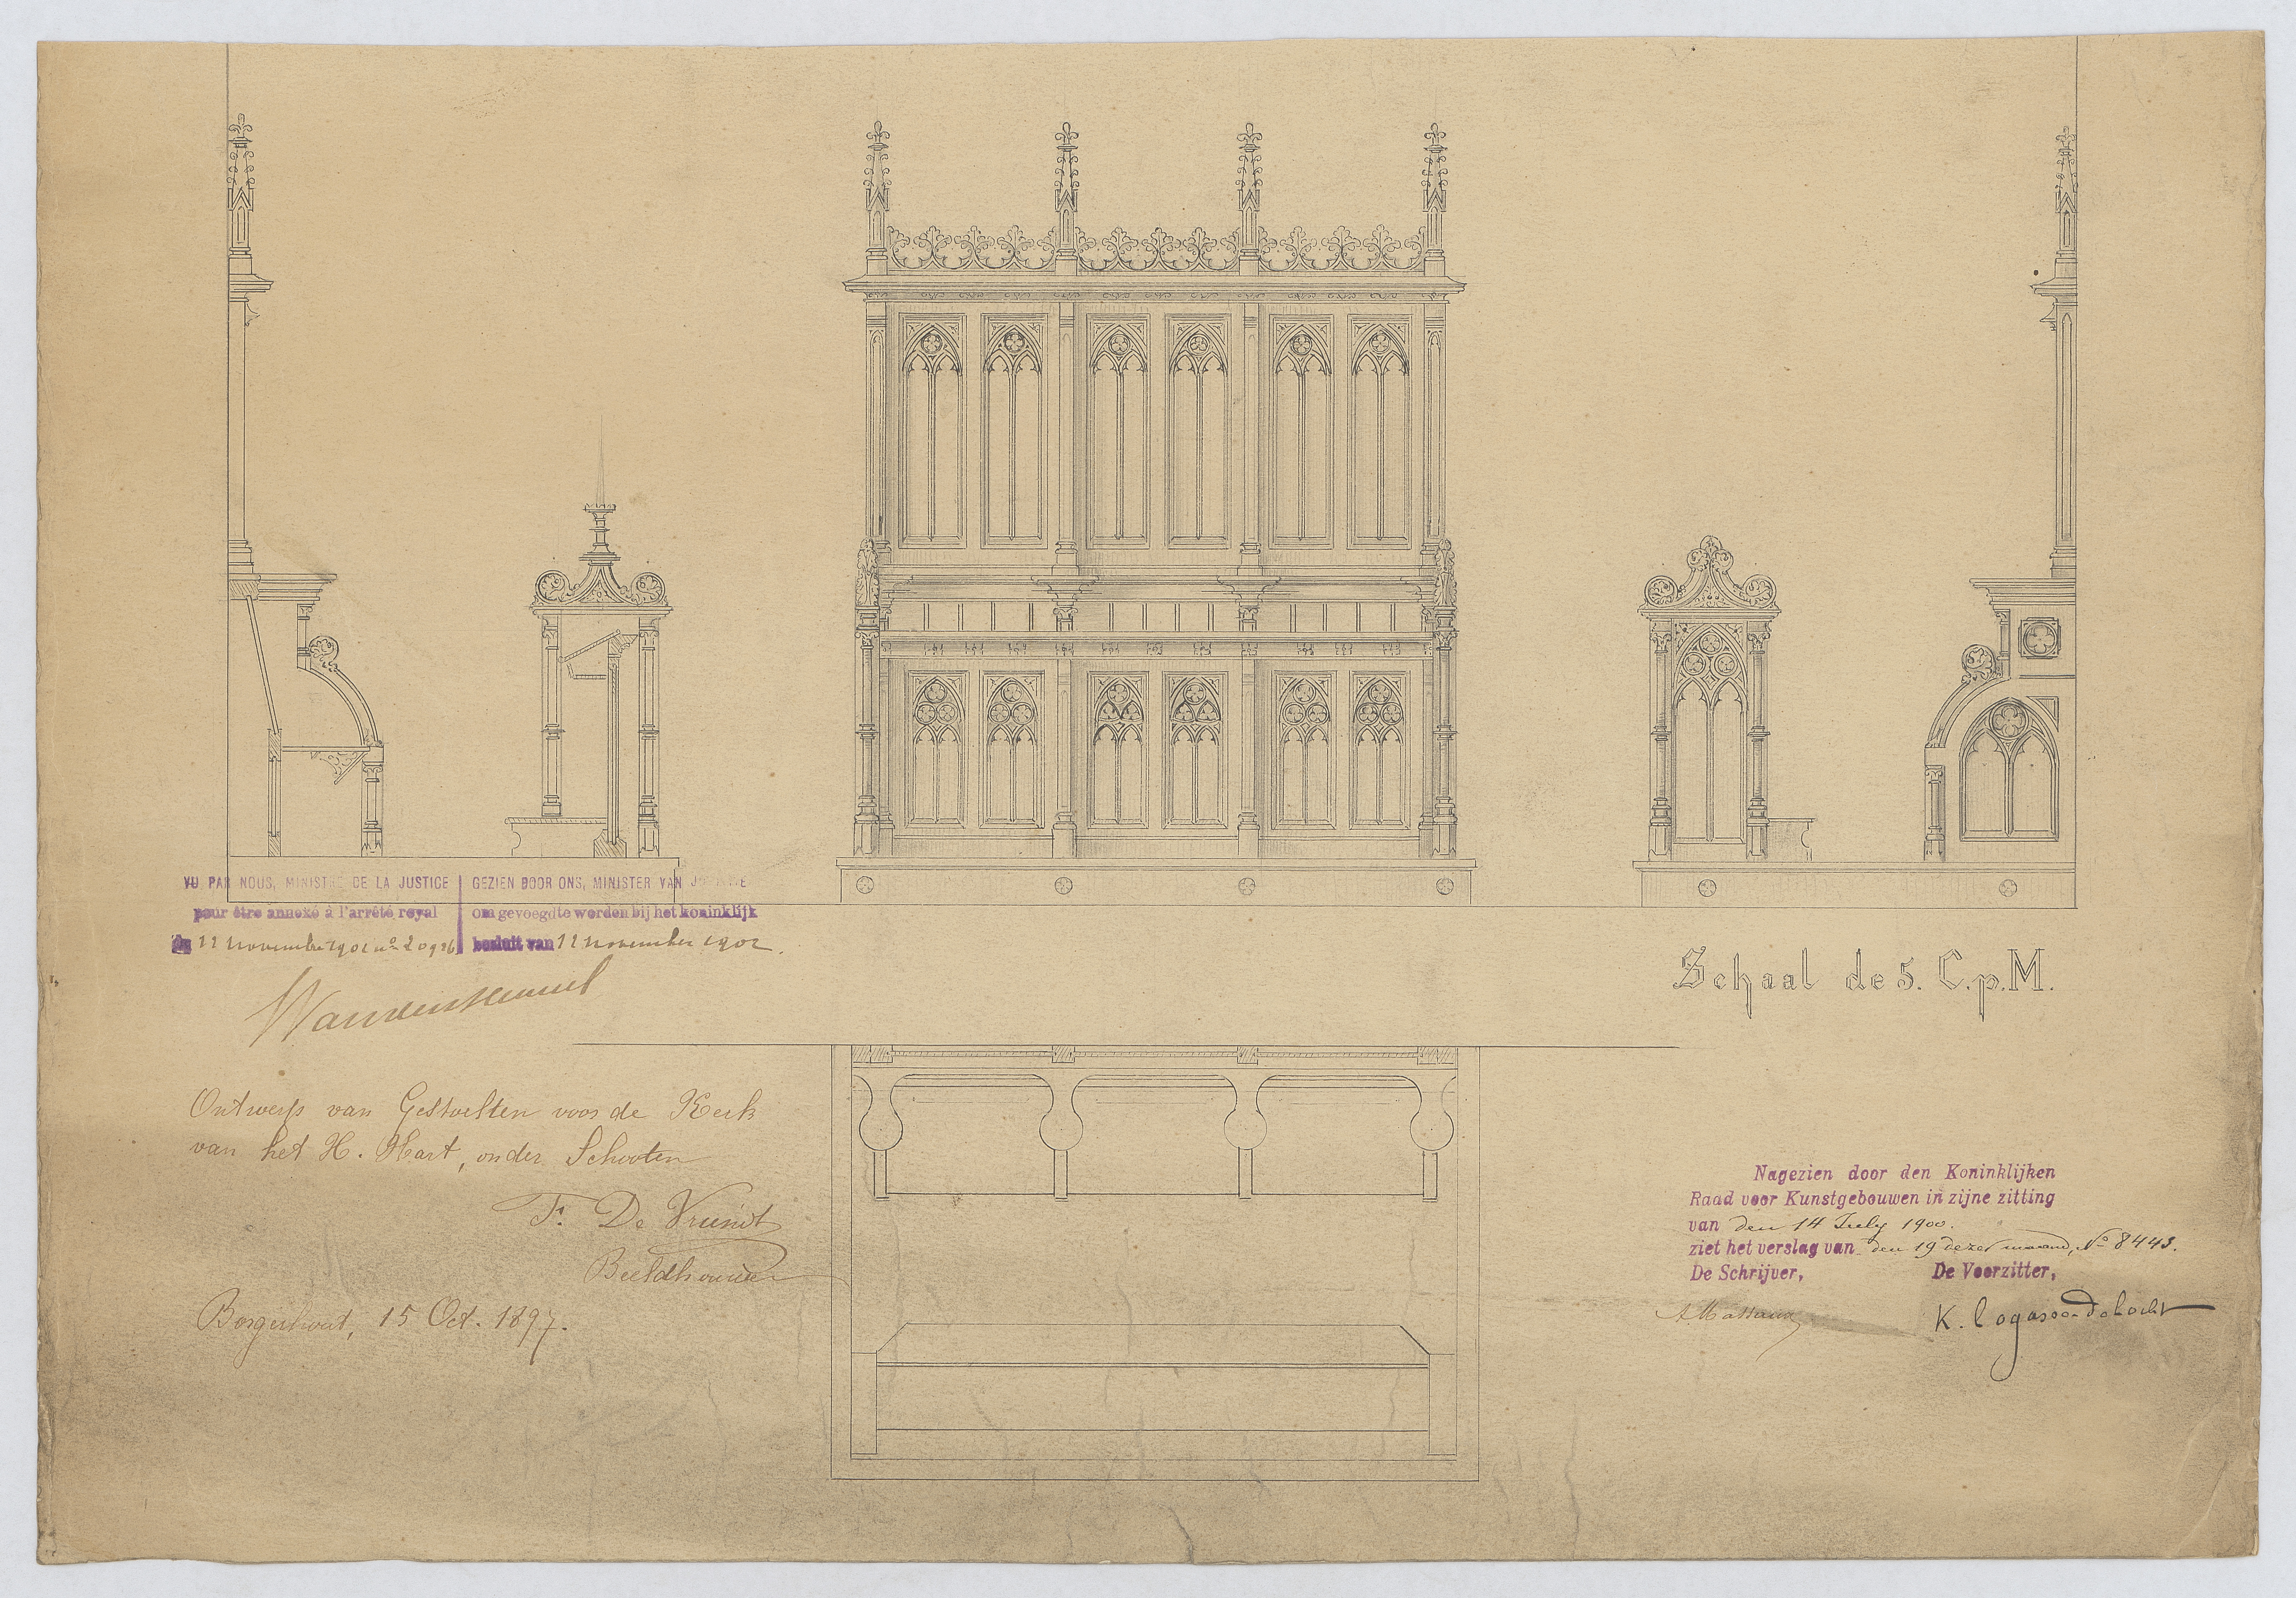 VU PAR NOUS, MINISTRE DE LA JUSTICE
pour être annexé à l'arrêté royal
du 11 novembre 1902 nº 20926
GEZIEN DOOR ONS, MINISTER VAN JUSTITIE
om gevoegd te worden bij het koninklijk
besluit van 11 november 1902.
Schaal de 5. C.p.M.
Ontwerp van Gestoelten voor de Kerk
van het H. Hart, onder Schooten
F. De Vriendt
Beeldhouwer
Borgerhout, 15 Oct. 1897.
Nagezien door den Koninklijken
Raad voor Kunstgebouwen in zijne zitting
van den 14 July 1900.
ziet het verslag van den 19 dezer maand, Nº 8443.
De Schrijver,
De Voorzitter,
A. Massaux